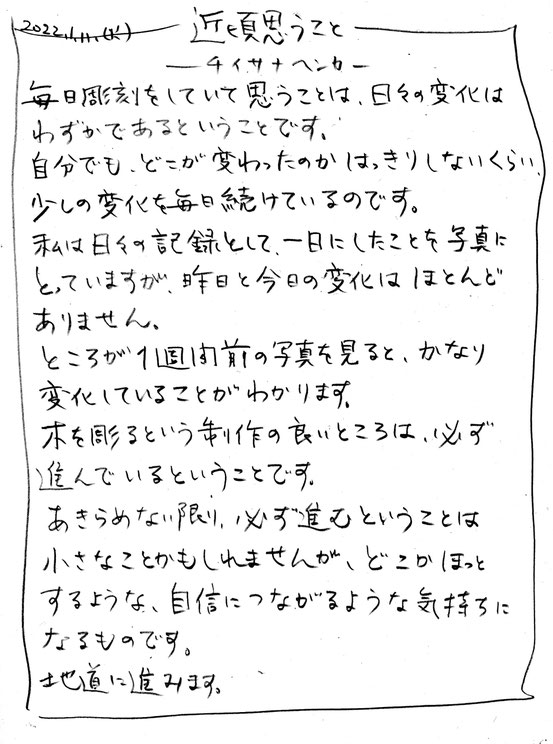 2022.1.11.(火)
近頃思うこと
ーチイサナヘンカー
毎日彫刻をしていて思うことは、日々の変化は
わずかであるということです。
自分でも、どこが変わったのかはっきりしないくらい、
少しの変化を毎日続けているのです。
私は日々の記録として、一日にしたことを写真に
とっていますが、昨日と今日の変化はほとんど
ありません。
ところが1週間前の写真を見ると、かなり
変化していることがわかります。
木を彫るという制作の良いところは、必ず
進んでいるということです。
あきらめない限り、必ず進むということは
小さなことかもしれませんが、どこかほっと
するような、自信につながるような気持ちに
なるものです。
地道に進みます。